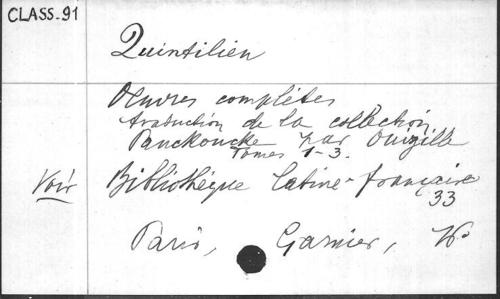 CLASS-91
Quintilien
Oeuvres complètes
traduction de la collection
Panckoucke par Ouizille
Tomes 1-3.
Voir Bibliothèque latine-française
33
Paris, Garnier,